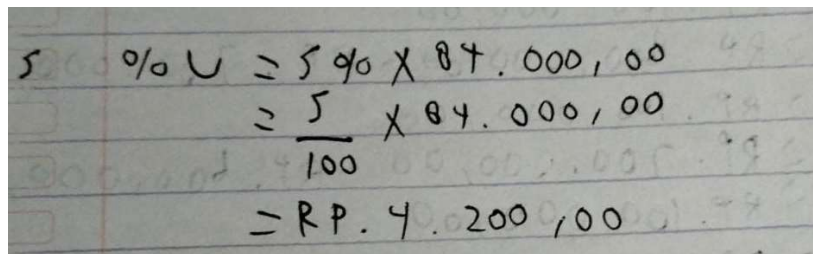 5 % U = 5 % X 84.000,00
= 5/100 X 84.000,00
= RP. 4.200,00